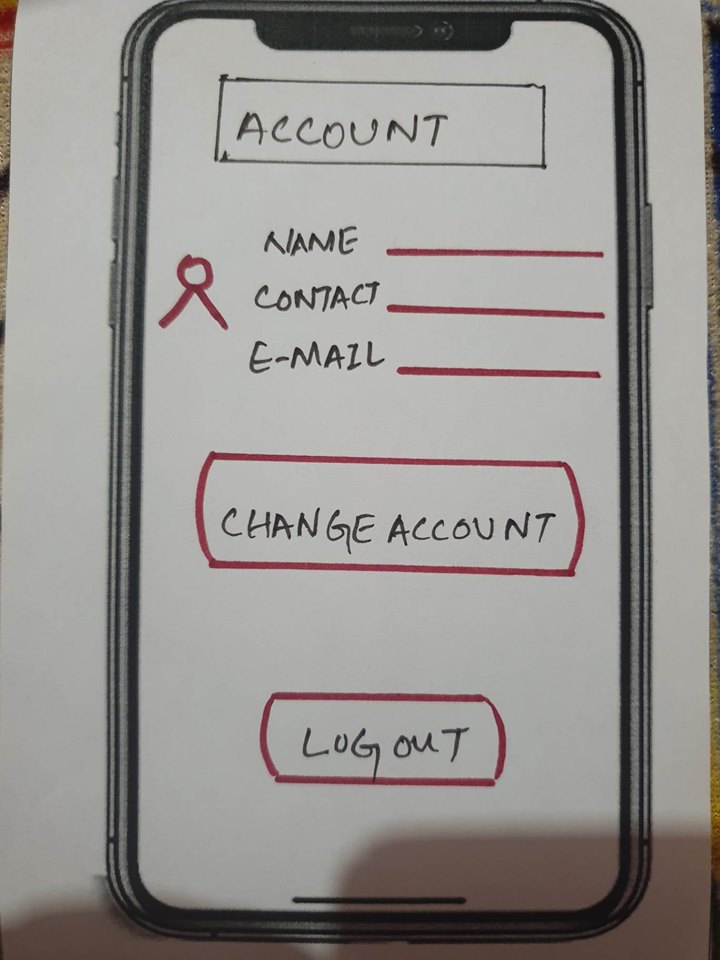 ACCOUNT
NAME
CONTACT
E-MAIL
CHANGE ACCOUNT
LOG OUT